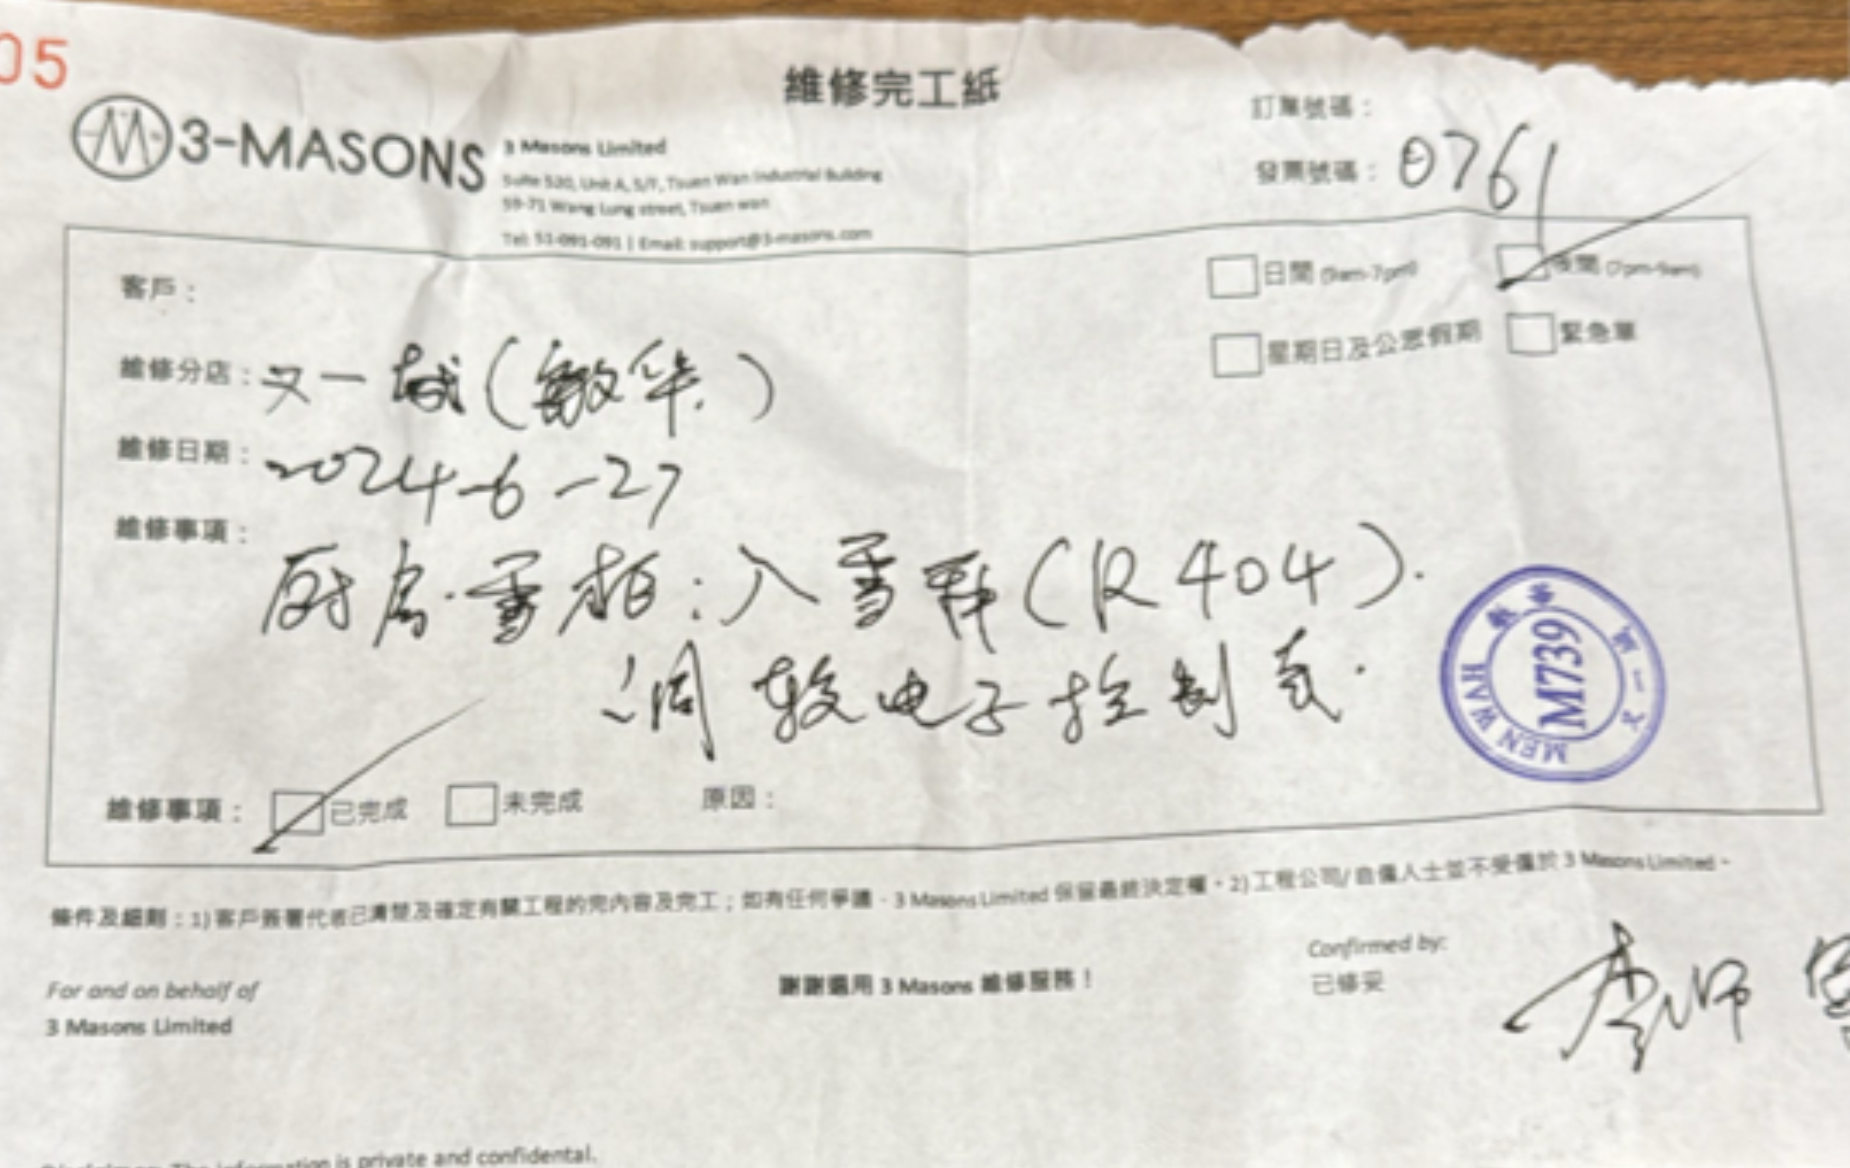 05
維修完工紙
3-MASONS
3 Masons Limited
Suite 520, Unit A, 5/F, Tsuen Wan Industrial Building
59-71 Wang Lung street, Tsuen wan
Tel: 51-091-091 | Email: support@3-masons.com
訂單號碼：
發票號碼： 0761
客戶：
日間 (9am-7pm) 夜間 (7pm-9am)
星期日及公眾假期 緊急單
維修分店： 又一城(敏华)
維修日期： 2024-6-27
維修事項：
厨房雪柜：入雪種(R404).
調較电子控制
MEN WAH M739 敏華 又一城
維修事項： 已完成 未完成 原因：
條件及細則：1) 客戶簽署代表已清楚及確定有關工程的完內容及完工；如有任何爭議，3 Masons Limited 保留最終決定權。2) 工程公司/自僱人士並不受僱於 3 Masons Limited。
For and on behalf of
3 Masons Limited
謝謝選用 3 Masons 維修服務！
Confirmed by:
已修妥
李师
Disclaimer: The information is private and confidential.